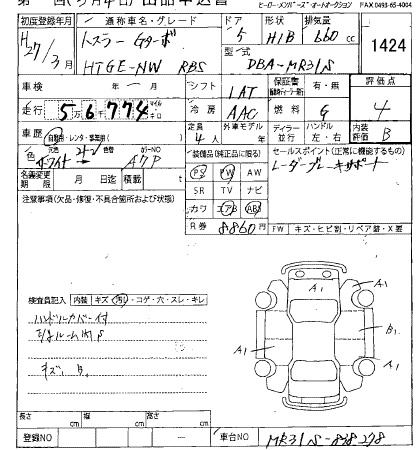 ヒーロー・メンバーズ・オートオークション FAX 0493-65-4004
初度登録年月 通称車名・グレード ドア 形状 排気量
H27/3月 ハスラー Gターボ 5 H/B 660 cc 1424
型式
HTGE-NW RBS DBA-MR31S
車検 年 月 シフト IAT 保証書 有・無 評価点
走行 56774 冷房 AAC 燃料 G 4
車歴 自家用・レンタ・事業用 定員 4人 外車モデル ディーラー 並行 ハンドル 左・右 内装評価 B
色 元色 色替 カラーNO A7P
装備品(純正品に限る) セールスポイント(正常に機能するもの)
レーダーブレーキサポート
名義変更期限 月 日迄 積載 t
PS PW AW
SR TV ナビ
カワ エアB ABS
R券 8860円
FW キズ・ヒビ割・リペア跡・X要
注意事項(欠品・修復・不具合箇所および状態)
検査員記入 内装 キズ・汚れ・コゲ・穴・スレ・キレ
ハンドルカバー付
キズ、B。
A1
A1
B1
A1
A1
長さ cm 幅 cm 高さ cm
登録NO 車台NO MR31S-838278